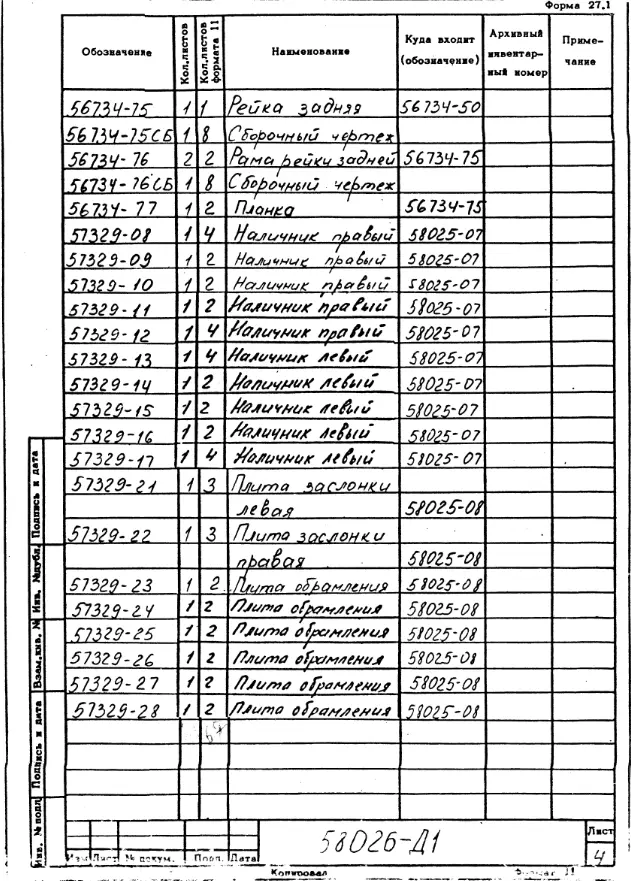 Форма 27.1
Обозначение Кол.листов Кол.листов формата 11 Наименование Куда входит (обозначение) Архивный инвентарный номер Примечание
56734-75 1 1 Рейка задняя 56734-50
56734-75СБ 1 8 Сборочный чертеж
56734-76 2 2 Рама рейки задней 56734-75
56734-76СБ 1 8 Сборочный чертеж
56734-77 1 2 Планка 56734-75
57329-08 1 4 Наличник правый 58025-07
57329-09 1 2 Наличник правый 58025-07
57329-10 1 2 Наличник правый 58025-07
57329-11 1 2 Наличник правый 58025-07
57329-12 1 4 Наличник правый 58025-07
57329-13 1 4 Наличник левый 58025-07
57329-14 1 2 Наличник левый 58025-07
57329-15 1 2 Наличник левый 58025-07
57329-16 1 2 Наличник левый 58025-07
57329-17 1 4 Наличник левый 58025-07
57329-21 1 3 Плита заслонки
левая 58025-08
57329-22 1 3 Плита заслонки
правая 58025-08
57329-23 1 2 Плита обрамления 58025-08
57329-24 1 2 Плита обрамления 58025-08
57329-25 1 2 Плита обрамления 58025-08
57329-26 1 2 Плита обрамления 58025-08
57329-27 1 2 Плита обрамления 58025-08
57329-28 1 2 Плита обрамления 58025-08
Подпись и дата
Инв. №дубл.
Взам.инв. №
Подпись и дата
Инв. №подл
58026-Д1
Лист
4
Изм Лист № докум. Подп. Дата
Копировал Формат 11